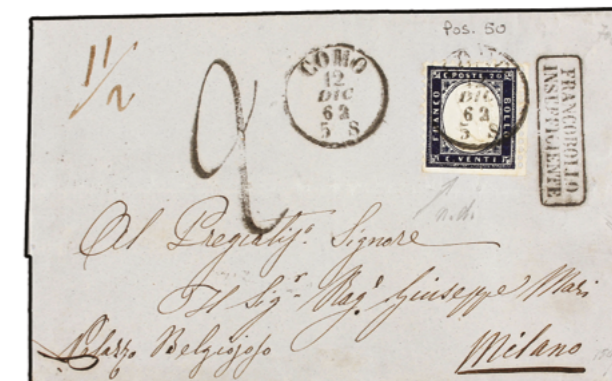 Pos. 50
11/2
2
COMO
12
DIC
62
5 S
C. POSTE 20
FRANCO
BOLLO
C. VENTI
DIC
62
5 S
FRANCOBOLLO
INSUFFICIENTE
Al Pregiatis.º Signore
Il Sig.r Rag.º Giuseppe Mari
Palazzo Belgiojoso
Milano